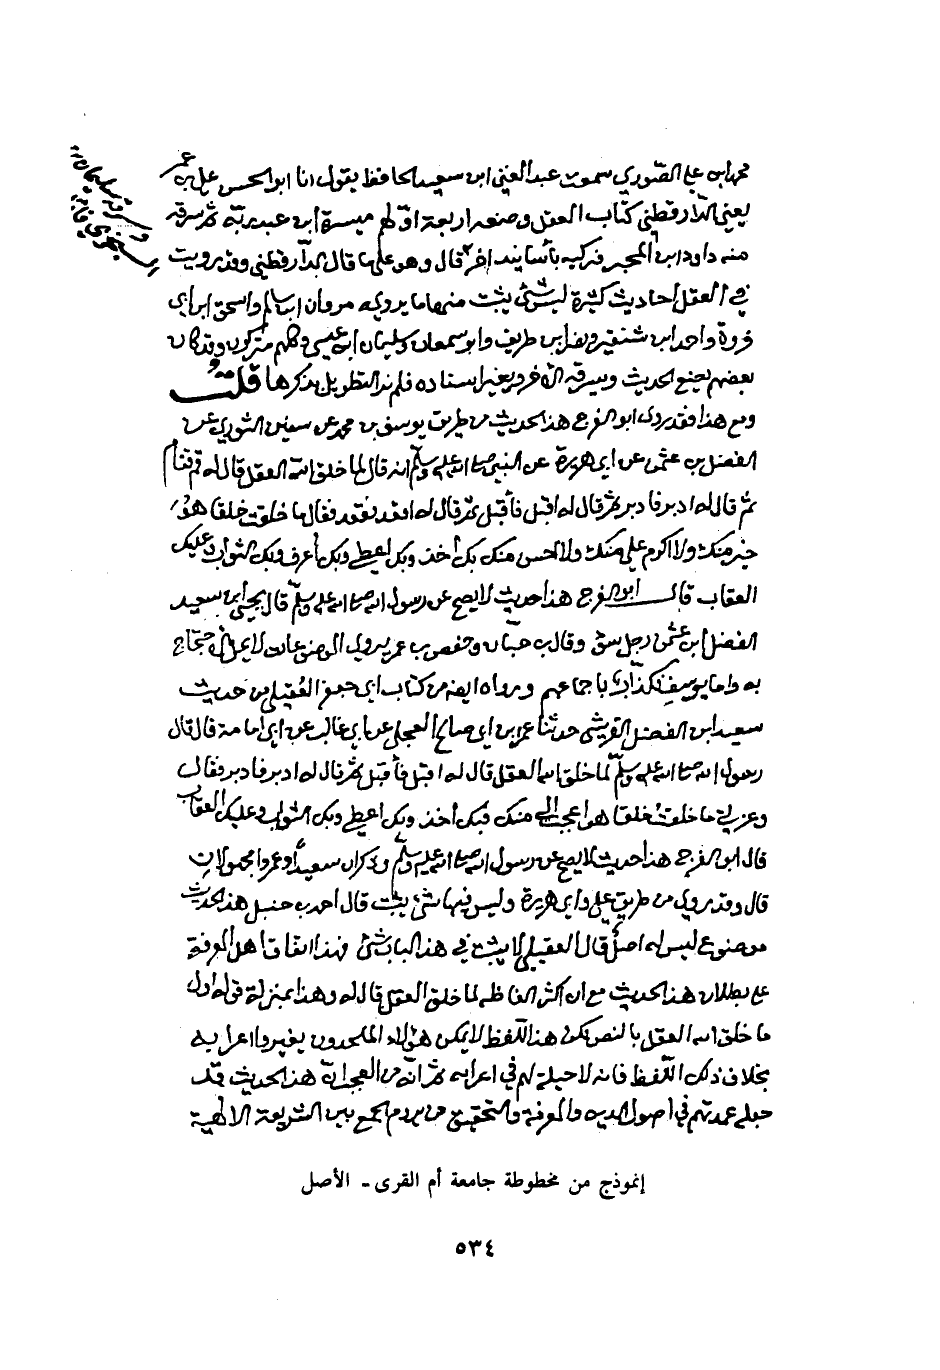 محمد ابن علي الصوري سمعت عبد الغني ابن سعيد الحافظ يقول انا ابو الحسن علي بن عمر
يعني الدارقطني كتاب العقل وضعه اربعة اولهم ميسرة ابن عبد ربه ثم سرقه
منه داود ابن المحبر فركبه بأسانيد اخر قال وهو على ما قال الدارقطني وقد رويت
في العقل احاديث كثيرة ليس شئ يثبت منها ما يرويه مروان ابن سالم واسحق ابن ابي
فروة واحمد ابن بشير ونصر ابن طريف وابو سمعان وسليمان ابن عيسى وكلهم متركون وقد كان
بعضهم يضع الحديث ويسرقه الاخر ويغير اسناده فلم نر التطويل بذكرها قلت
ومع هذا فقد روى ابو الفرج هذا الحديث من طريق يوسف بن محمد عن سفين الثوري عن
الفضل بن عثمن عن ابي هريرة عن النبي صلى الله عليه وسلم انه قال لما خلق الله العقل قال له قم فقام
ثم قال له ادبر فادبر ثم قال له اقبل فأقبل ثم قال له اقعد فقعد فقال ما خلقت خلقا هو
خير منك ولا اكرم علي منك ولا احسن منك بك أخذ وبك اعطي وبك أعرف وبك الثواب وعليك
العقاب قال ابو الفرج هذا حديث لا يصح عن رسول الله صلى الله عليه وسلم قال يحيى ابن سعيد
الفضل ابن عثمن رجل سوء وقال ابن حبان وحفص بن عمر يروي الموضوعات لا يحل الاحتجاج
به واما يوسف فكذاب باجماعهم ورواه ايضا من كتاب ابي جعفر العقيلي من حديث
سعيد ابن الفضل القرشي حدثنا عمر بن ابي صالح العجلي عن ابي غالب عن ابي امامة قال قال
رسول الله صلى الله عليه وسلم لما خلق الله العقل قال له اقبل فأقبل ثم قال له ادبر فادبر فقال
وعزتي ما خلقت خلقا هو اعجب الي منك فبك أخذ وبك اعطي وبك الثواب وعليك العقاب
قال ابو الفرج هذا حديث لا يصح عن رسول الله صلى الله عليه وسلم وذكر ان سعيداً وعمر وا مجهولان
قال وقد روي من طريق علي وابي هريرة وليس فيها شئ يثبت قال احمد بن حنبل هذا الحديث
موضوع ليس له اصل قال العقيلي لا يثبت في هذا الباب شئ فهذا اتفاق اهل المعرفة
على بطلان هذا الحديث مع ان اكثر الفاظه لما خلق العقل قال له وهذا بمنزلة قوله اول
ما خلق الله العقل بالنصب لكن هذا اللفظ لا يمكن هؤلاء الملحدون يغيروا اعرابه
بخلاف ذلك اللفظ فانه لا حيلة لهم في اعرابه ثم انه من العجب ان هذا الحديث قد
جعله عمدتهم في اصول الدين والمعرفة والتحقيق من يروم الجمع بين الشريعة الالهية
إنموذج من مخطوطة جامعة أم القرى - الأصل
٥٣٤